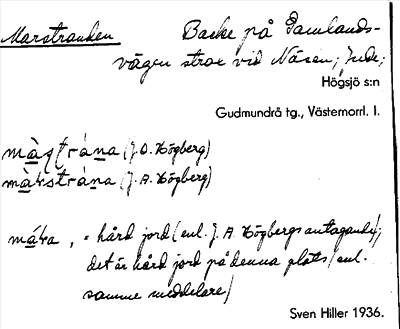 Marstranken Backe på Gamlands-
vägen strax vid Näsen, Jude;
Högsjö s:n
Gudmundrå tg., Västernorrl. l.
(J.O. Högberg)
(J.A. Högberg)
= hård jord (enl. J. A. Högbergs antagande);
det är hård jord på denna plats (enl.
samme meddelare)
Sven Hiller 1936.